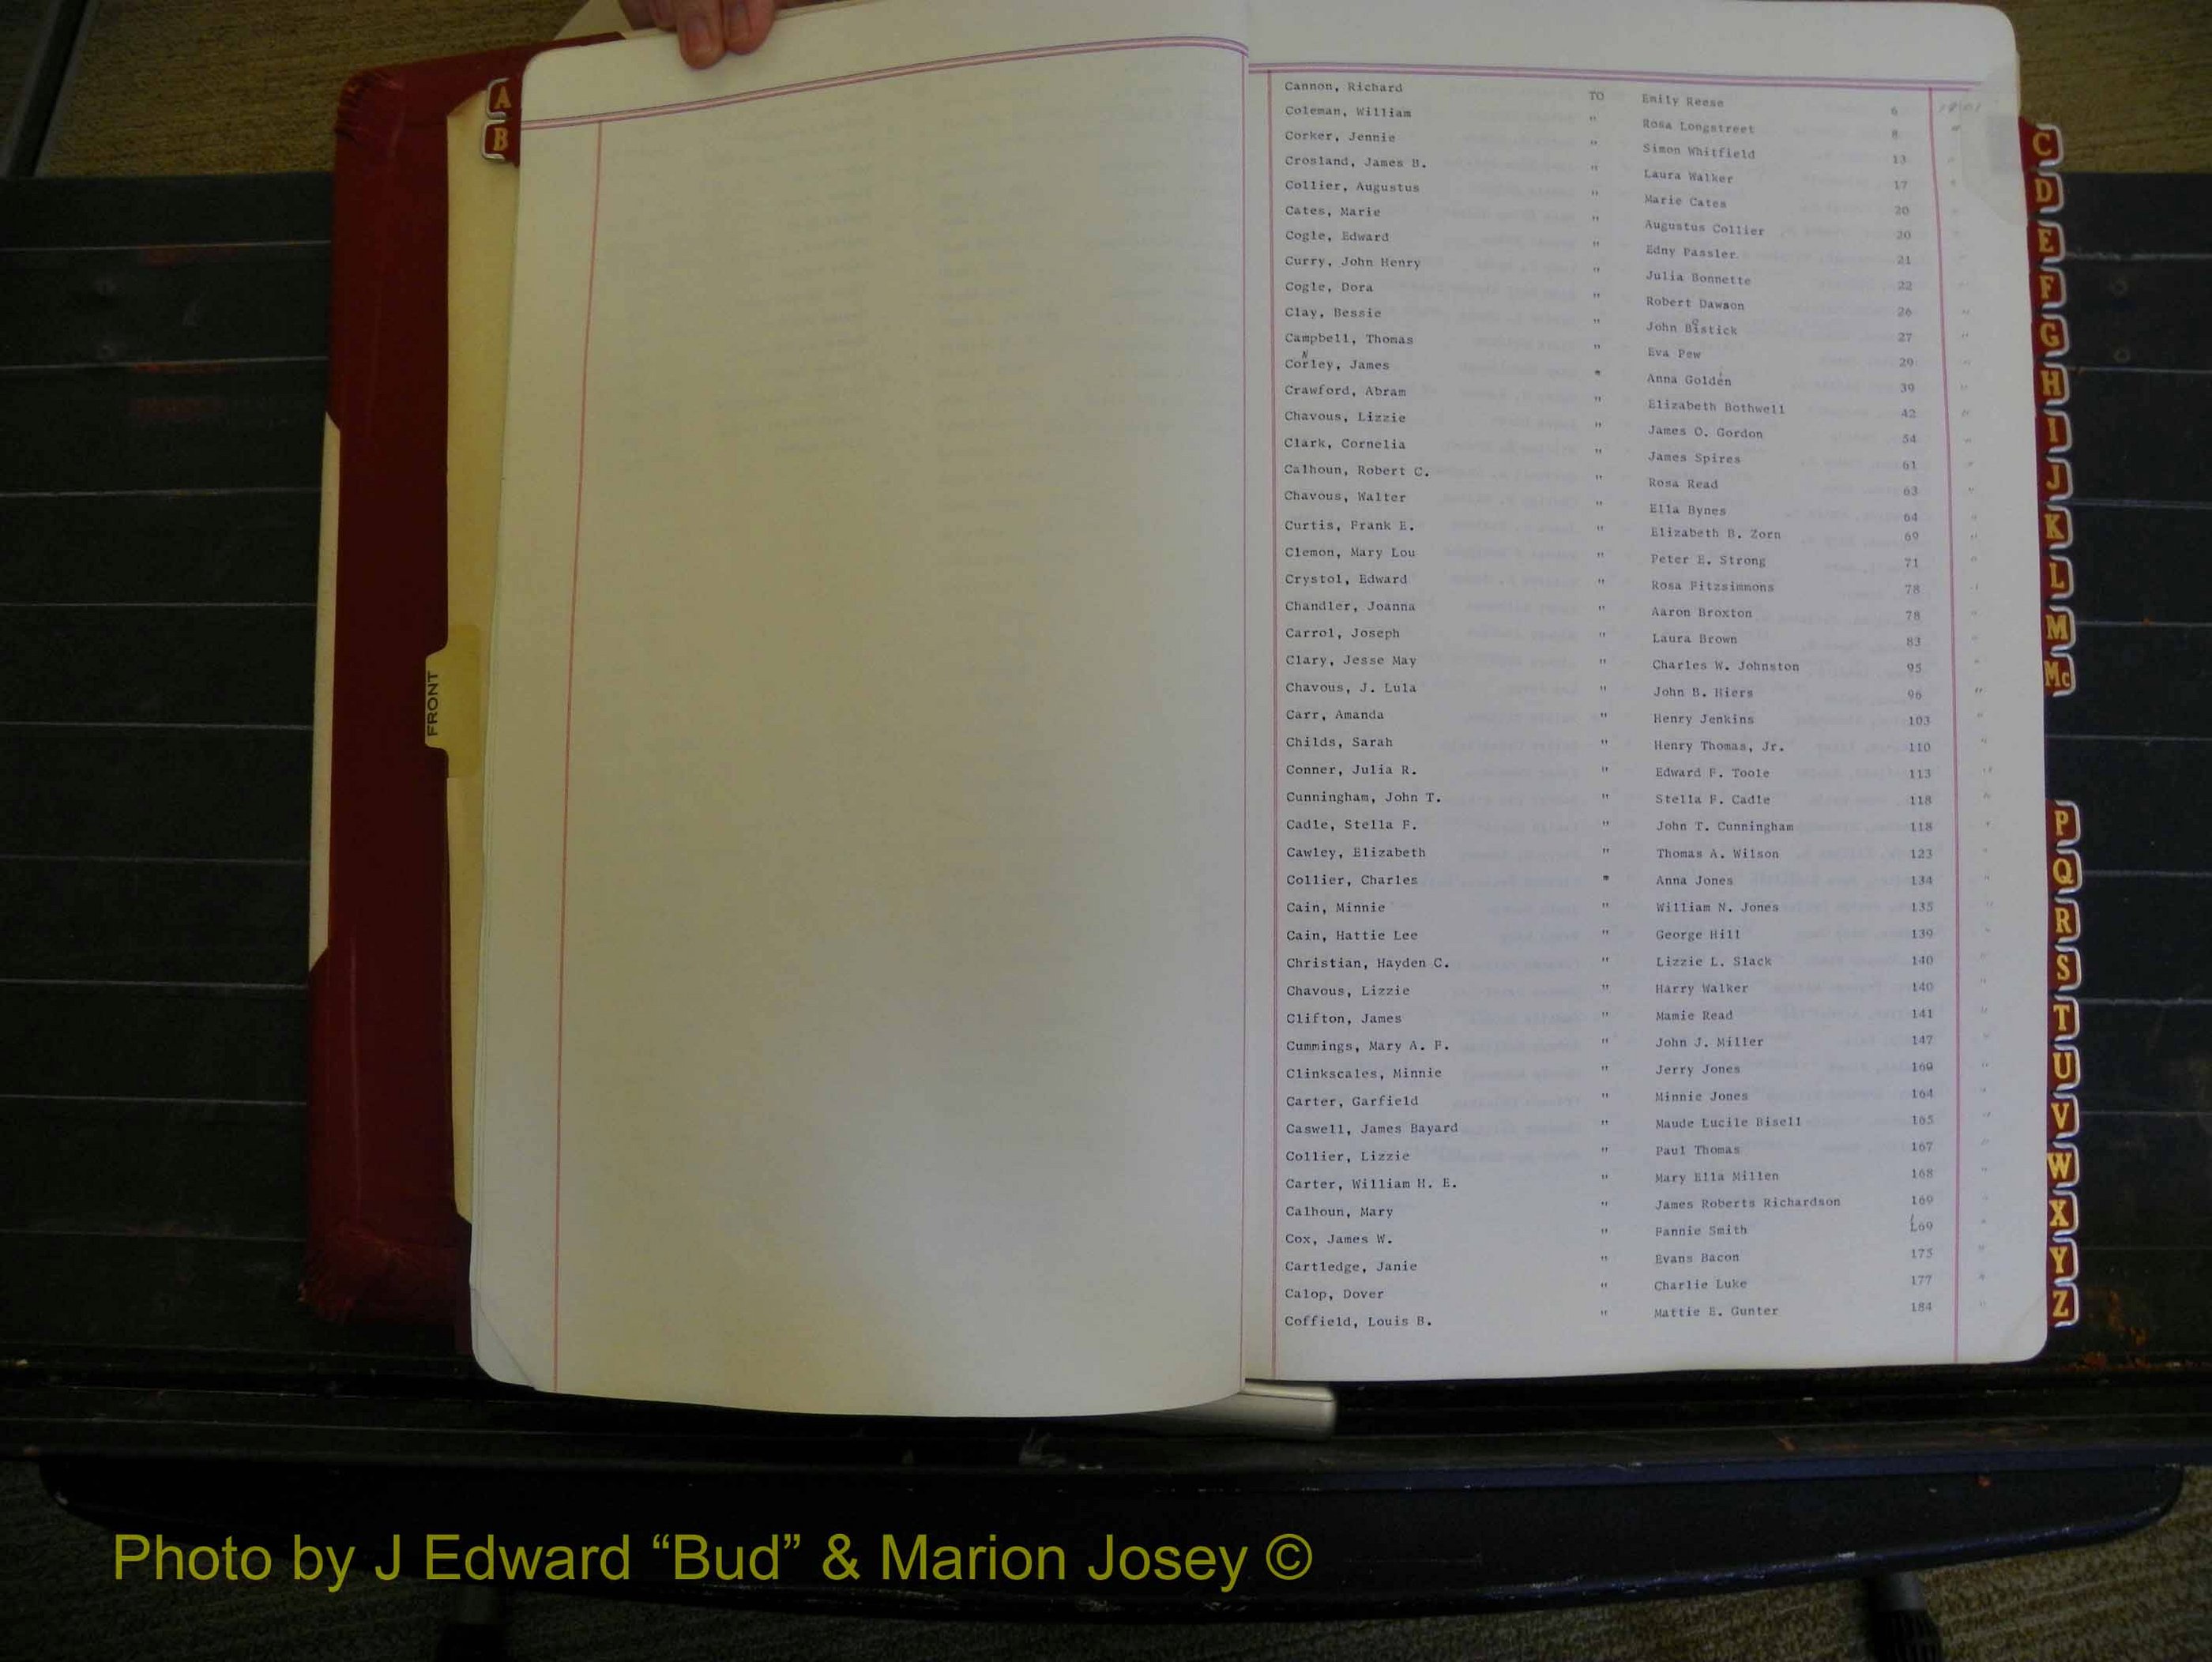 A
B
FRONT
Cannon, Richard TO Emily Reese 6 1901
Coleman, William " Rosa Longstreet 8 "
Corker, Jennie " Simon Whitfield 13 "
Crosland, James B. " Laura Walker 17 "
Collier, Augustus " Marie Cates 20 "
Cates, Marie " Augustus Collier 20 "
Cogle, Edward " Edny Passler 21 "
Curry, John Henry " Julia Bonnette 22 "
Cogle, Dora " Robert Dawson 26 "
Clay, Bessie " John Bostick 27 "
Campbell, Thomas " Eva Pew 29 "
Conley, James " Anna Golden 39 "
Crawford, Abram " Elizabeth Bothwell 42 "
Chavous, Lizzie " James O. Gordon 54 "
Clark, Cornelia " James Spires 61 "
Calhoun, Robert C. " Rosa Read 63 "
Chavous, Walter " Ella Bynes 64 "
Curtis, Frank E. " Elizabeth B. Zorn 69 "
Clemon, Mary Lou " Peter E. Strong 71 "
Crystol, Edward " Rosa Fitzsimmons 78 "
Chandler, Joanna " Aaron Broxton 78 "
Carrol, Joseph " Laura Brown 83 "
Clary, Jesse May " Charles W. Johnston 95 "
Chavous, J. Lula " John B. Hiers 96 "
Carr, Amanda " Henry Jenkins 103 "
Childs, Sarah " Henry Thomas, Jr. 110 "
Conner, Julia R. " Edward F. Toole 113 "
Cunningham, John T. " Stella F. Cadle 118 "
Cadle, Stella F. " John T. Cunningham 118 "
Cawley, Elizabeth " Thomas A. Wilson 123 "
Collier, Charles " Anna Jones 134 "
Cain, Minnie " William N. Jones 135 "
Cain, Hattie Lee " George Hill 139 "
Christian, Hayden C. " Lizzie L. Slack 140 "
Chavous, Lizzie " Harry Walker 140 "
Clifton, James " Mamie Read 141 "
Cummings, Mary A. F. " John J. Miller 147 "
Clinkscales, Minnie " Jerry Jones 160 "
Carter, Garfield " Minnie Jones 164 "
Caswell, James Bayard " Maude Lucile Bisell 165 "
Collier, Lizzie " Paul Thomas 167 "
Carter, William H. E. " Mary Ella Millen 168 "
Calhoun, Mary " James Roberts Richardson 169 "
Cox, James W. " Fannie Smith 169 "
Cartledge, Janie " Evans Bacon 175 "
Calop, Dover " Charlie Luke 177 "
Coffield, Louis B. " Mattie E. Gunter 184 "
C
D
E
F
G
H
I
J
K
L
M
Mc
P
Q
R
S
T
U
V
W
X
Y
Z
Photo by J Edward “Bud” & Marion Josey ©